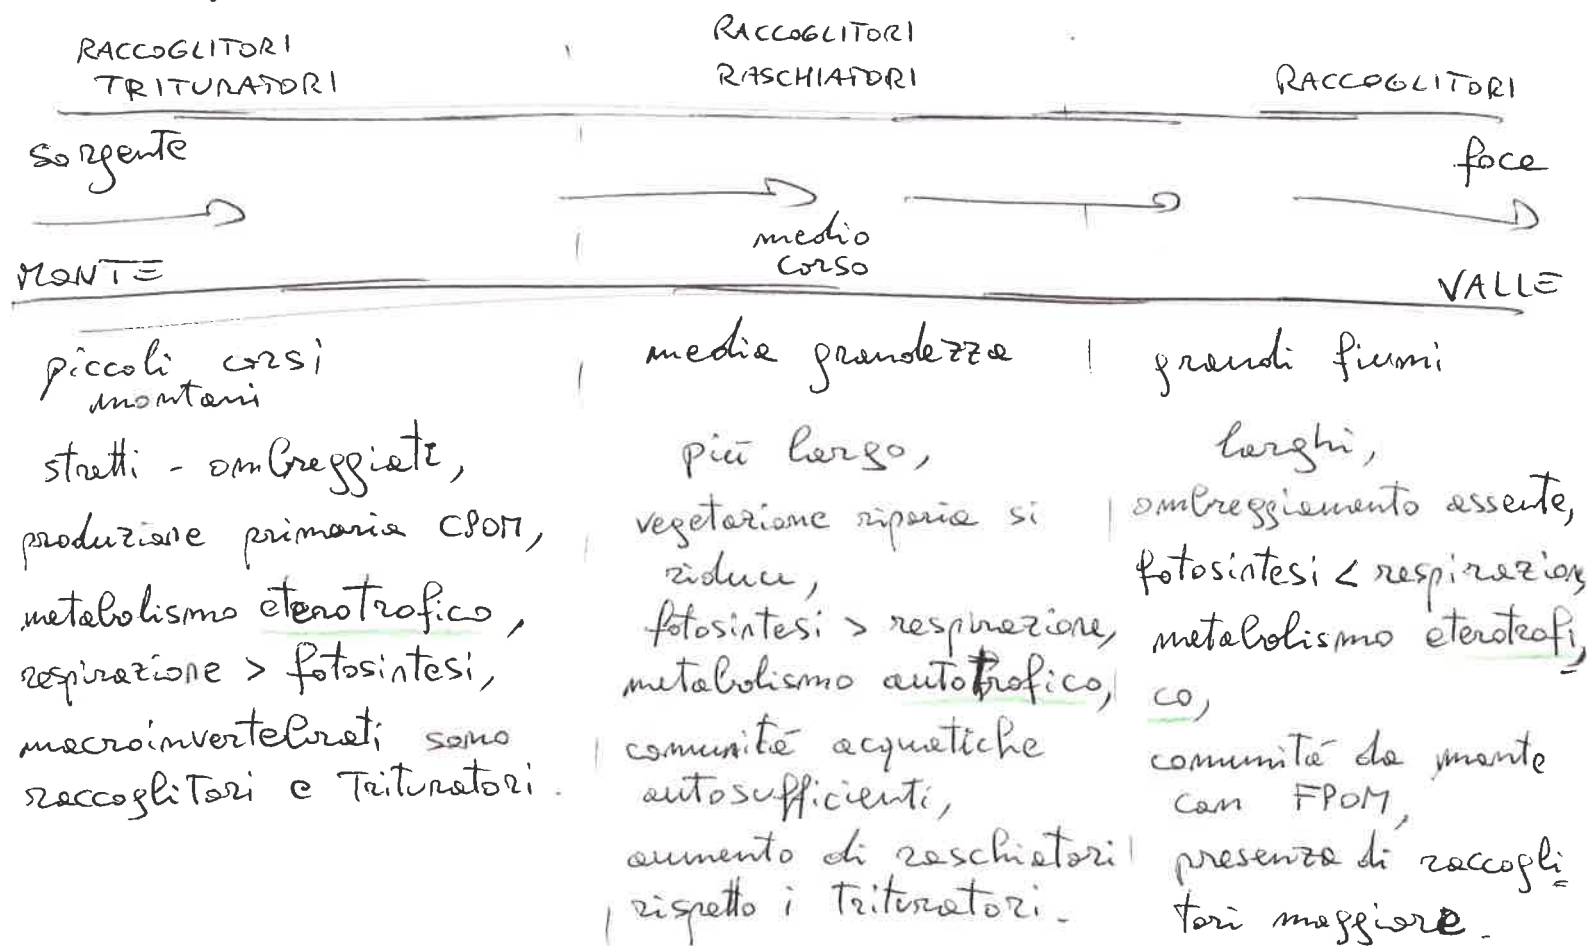 RACCOGLITORI
TRITURATORI
RACCOGLITORI
RASCHIATORI
RACCOGLITORI
sorgente
foce
medio
corso
MONTE
VALLE
piccoli corsi
montani
stretti - ombreggiati,
produzione primaria CPOM,
metabolismo eterotrofico,
respirazione > fotosintesi,
macroinvertebrati sono
raccoglitori e Trituratori.
media grandezza
più largo,
vegetazione riparia si
riduce,
fotosintesi > respirazione,
metabolismo autotrofico,
comunità acquatiche
autosufficienti,
aumento di raschiatori
rispetto i Trituratori.
grandi fiumi
larghi,
ombreggiamento assente,
fotosintesi < respirazione,
metabolismo eterotrofi
co,
comunità da monte
con FPOM,
presenza di raccogli
tori maggiore.